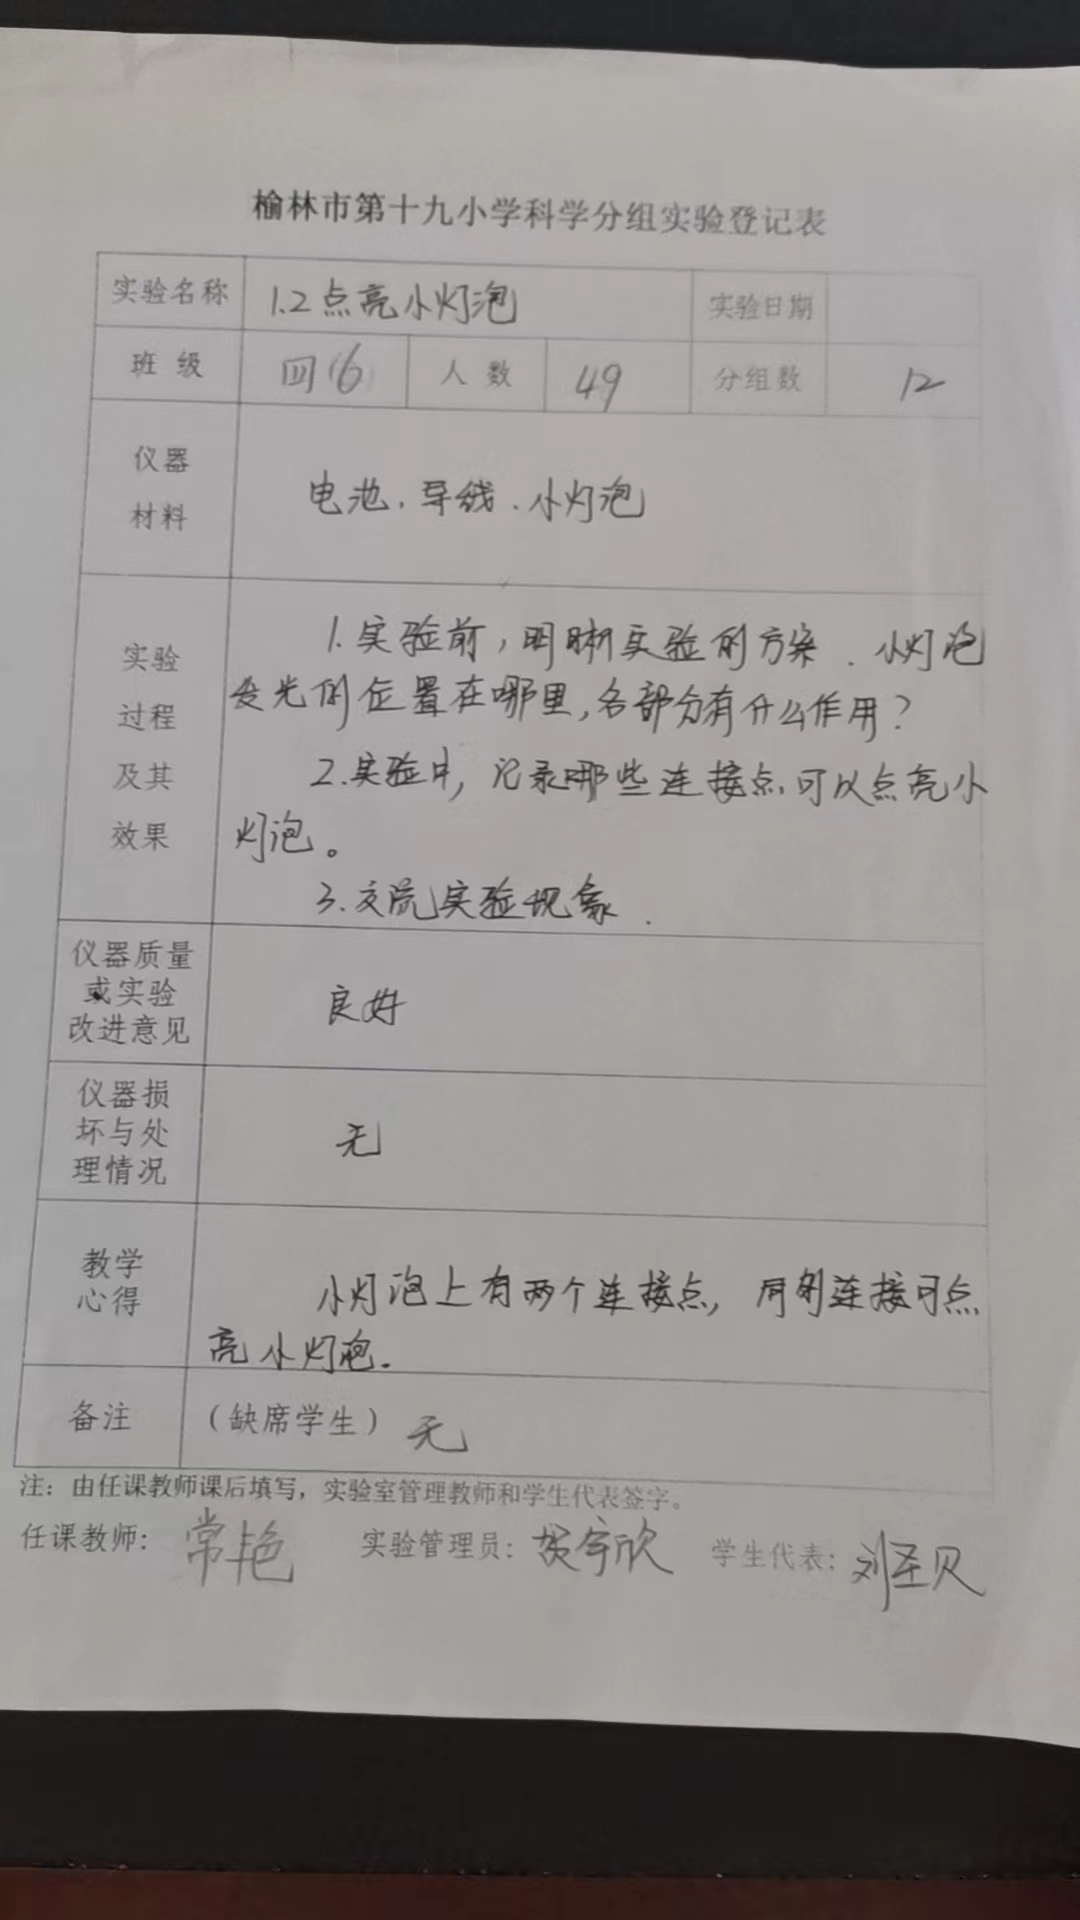 榆林市第十九小学科学分组实验登记表
实验名称 1.2点亮小灯泡 实验日期
班 级 四(6) 人 数 49 分组数 12
仪器
材料
电池.导线.小灯泡
实验
过程
及其
效果
1.实验前,明晰实验的方案.小灯泡
发光的位置在哪里,各部分有什么作用?
2.实验中,记录哪些连接点可以点亮小
灯泡。
3.交流实验现象.
仪器质量
或实验
改进意见
良好
仪器损
坏与处
理情况
无
教学
心得
小灯泡上有两个连接点,同时连接可点
亮小灯泡.
备注 (缺席学生) 无
注:由任课教师课后填写,实验室管理教师和学生代表签字。
任课教师:常艳 实验管理员:贺宇欣 学生代表:刘圣贝